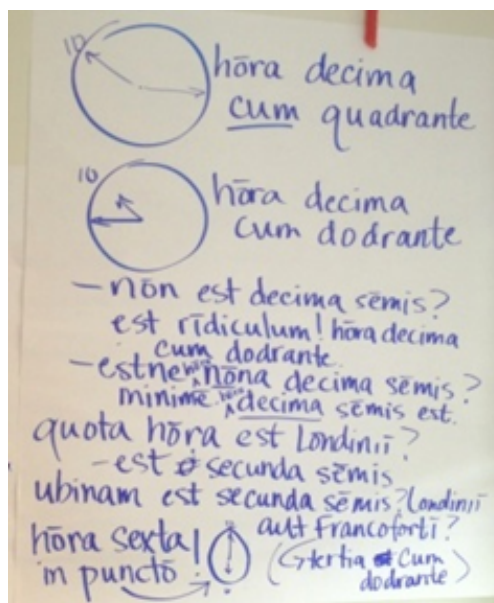 10
hōra decima
cum quadrante
10
hōra decima
cum dodrante
— nōn est decima sēmis?
est rīdiculum! hōra decima
cum dodrante.
— estne hōra nōna decima sēmis?
minimē. hōra decima sēmis est.
quota hōra est Londiniī?
- est secunda sēmis
ubinam est secunda sēmis? Londiniī
aut Francofortī?
hōra sexta
in punctō!
( tertia cum
dodrante )